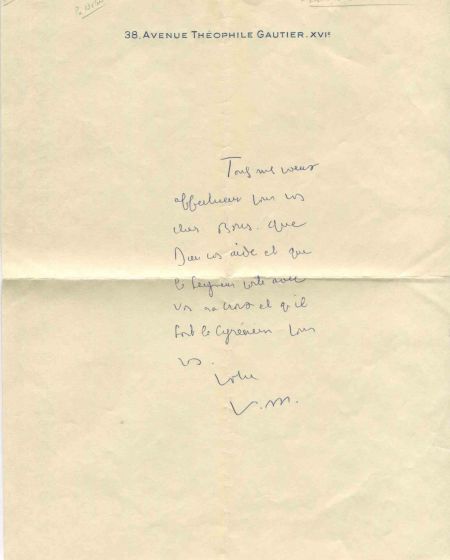 38, AVENUE THÉOPHILE GAUTIER. XVIe
Tous mes vœux
affectueux pour vos
cher Boris. Que
Dieu vos aide et que
le Seigneur porte avec
vos sa croix et qu'il
soit le Cyrénéen pour
vos.
Votre
V.M.